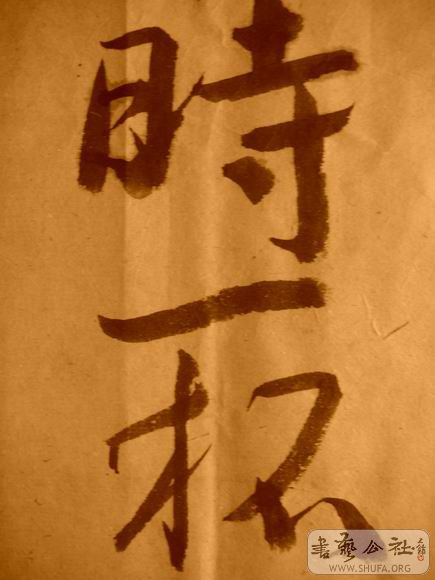 時一杯
書藝公社
WWW.SHUFA.ORG